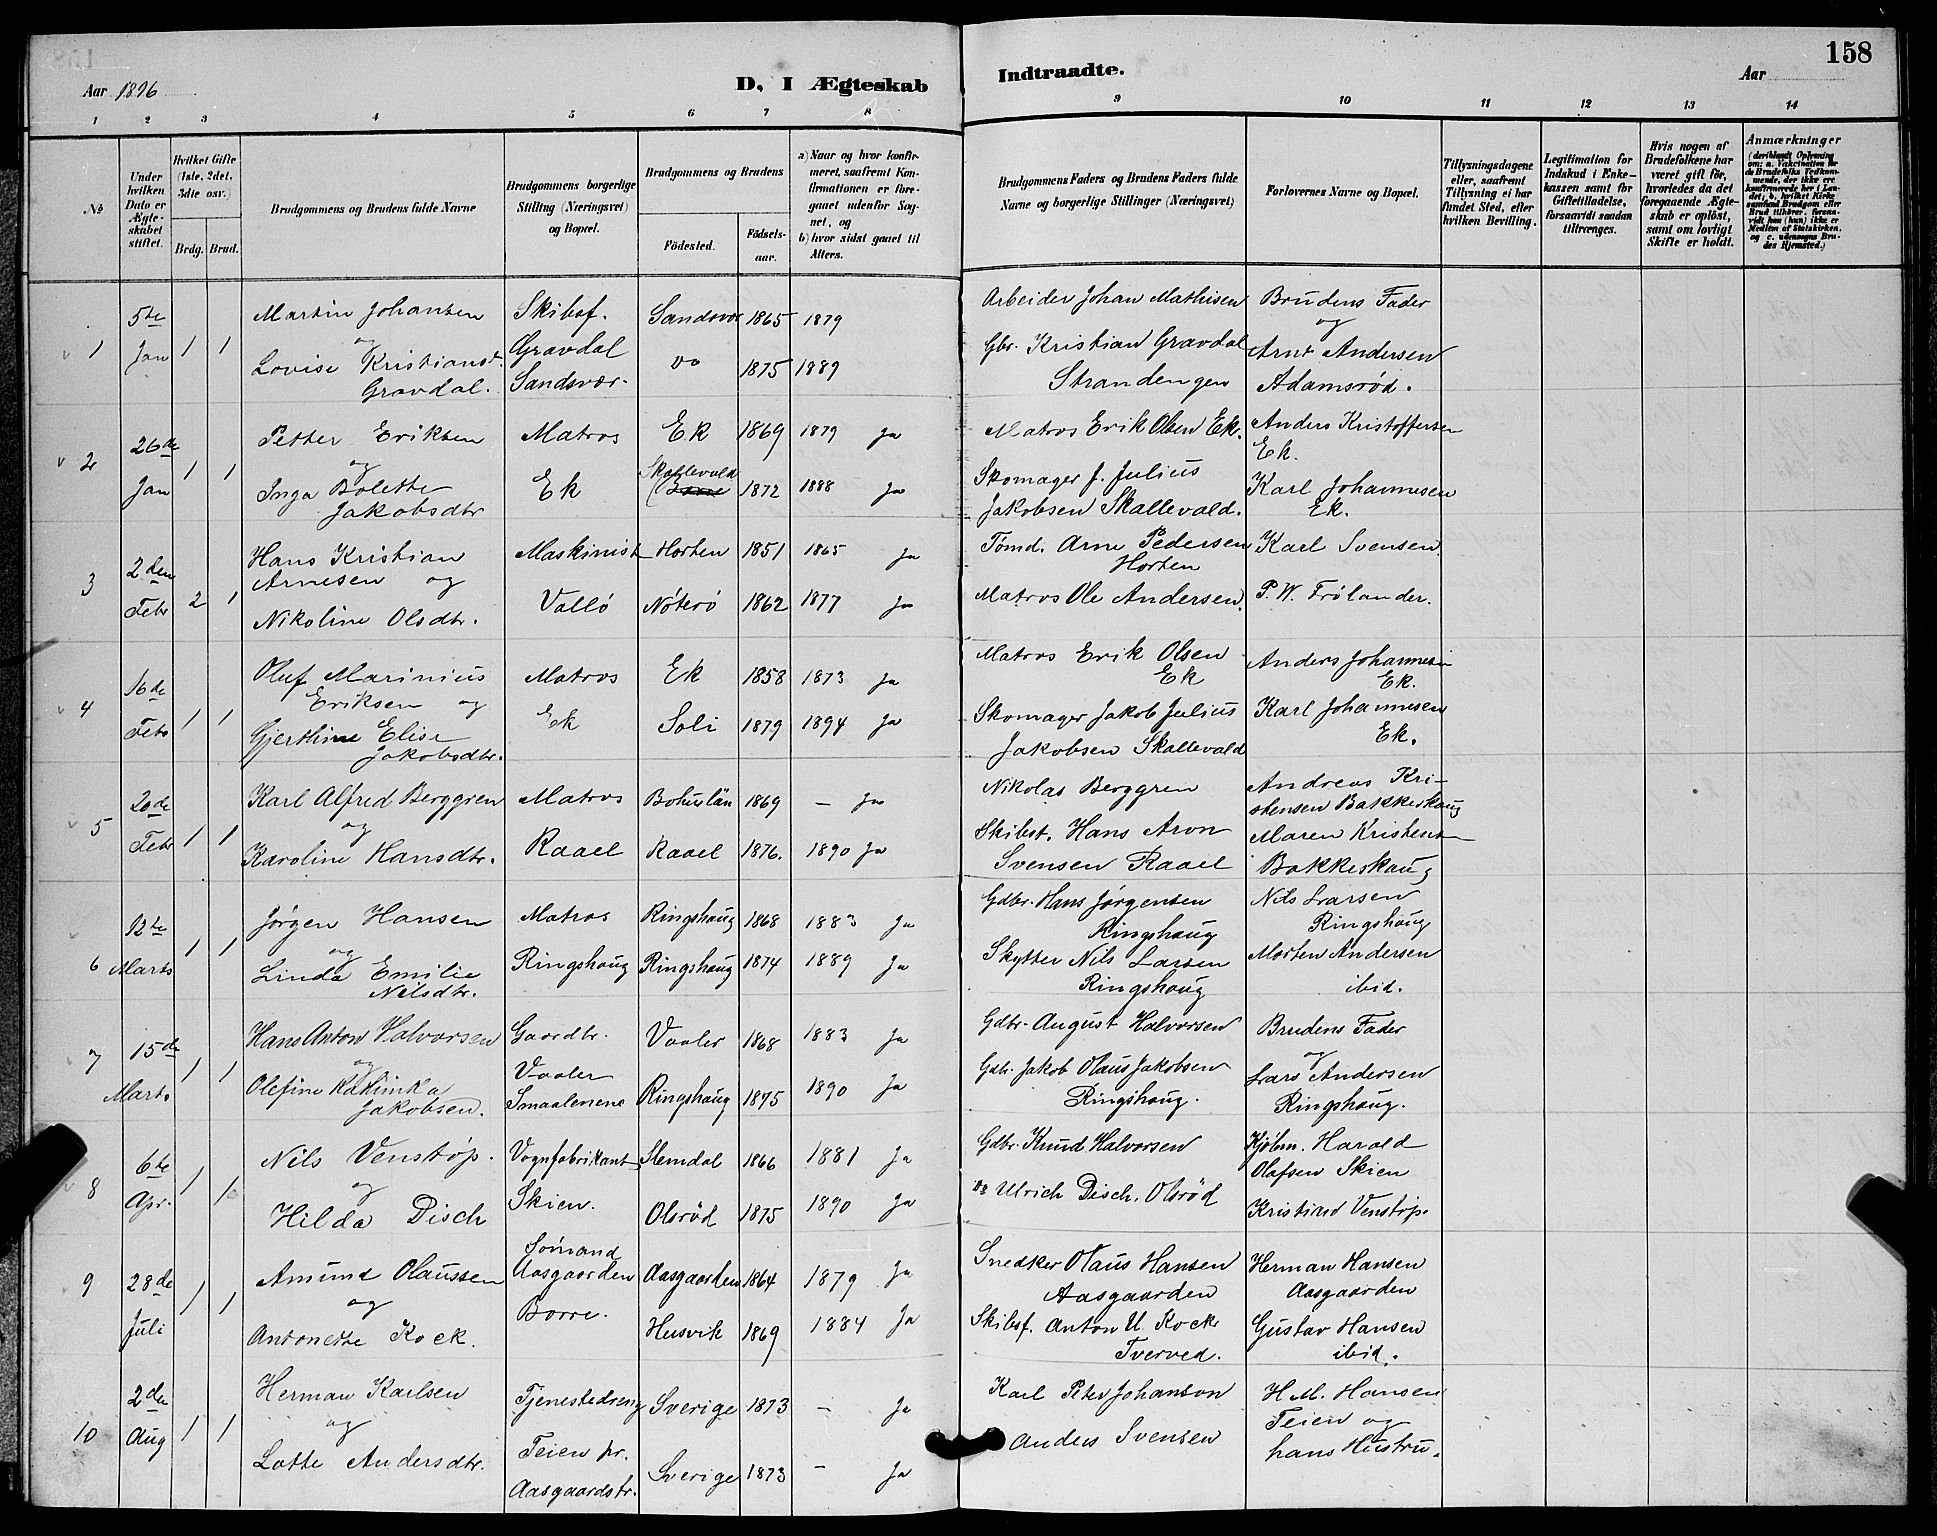 158
Aar 1896
D, I Ægteskab Indtraadte.
Aar
1 2 3 4 5 6 7 8 9 10 11 12 13 14
No
Under hvilken Dato er Ægteskabet stiftet.
Hvilket Gifte (1ste, 2det, 3dte osv.)
Brdg. Brud.
Brudgommens og Brudens fulde Navne
Brudgommens borgerlige Stilling (Næringsvei) og Bopæl.
Brudgommens og Brudens
Fødested. Fødselsaar.
a) Naar og hvor konfirmeret, saafremt Konfirmationen er foregaaet udenfor Sognet, og
b) hvor sidst gaaet til Alters.
Brudgommens Faders og Brudens Faders fulde Navne og borgerlige Stillinger (Næringsvei)
Forlovernes Navne og Bopæl.
Tillysningsdagene eller, saafremt Tillysning ei har fundet Sted, efter hvilken Bevilling.
Legitimation for Indskud i Enkekassen samt for Giftetilladelse, forsaavidt saadan tiltrænges.
Hvis nogen af Brudefolkene har været gift før, hvorledes da det foregaaende Ægteskab er opløst, samt om lovligt Skifte er holdt.
Anmærkninger
(deriblandt Oplysning om: a. Vaccination for de Brudefolks Vedkommende, der ikke ere konfirmerede her i Landet; b. hvilket Kirkesamfund Brudgom eller Brud tilhører, forsaavidt han (hun) ikke er Medlem af Statskirken, og c. udensogns Brudes Hjemsted.)
1 5te Jan 1 1
Martin Johansen Skibsf. Sandsvær 1865 1879 Arbeider Johan Mathisen Brudens Fader
og Gravdal og
Lovise Kristiansd. Sandsvær. do 1875 1889 Gbr. Kristian Gravdal Arnt Andersen
Gravdal. Strandengen Adamsrød.
2 26de Jan 1 1
Petter Eriksen Matros Ek 1869 1879 Ja Matros Erik Olsen Ek. Anders Kristoffersen
og Ek.
Inga Bolette Ek Skallevald 1872 1888 Ja Skomager J. Julius Karl Johannesen
Jakobsdtr Jakobsen Skallevald. Ek.
3 2den Febr 2 1
Hans Kristian Maskinist Horten 1851 1865 Ja Tømd. Arne Pedersen Karl Svensen
Arnesen og Horten
Nikoline Olsdtr. Vallø Nøterø 1862 1877 Ja Matros Ole Andersen. P. W. Frølander.
4 16de Febr 1 1
Oluf Marinius Matros Ek 1858 1873 Ja Matros Erik Olsen Anders Johannesen
Eriksen og Ek Ek.
Gjerthine Elise Ek Soli 1879 1894 Ja Skomager Jakob Julius Karl Johannesen
Jakobsdtr. Jakobsen Skallevald Ek.
5 20de Febr 1 1
Karl Alfred Berggren Matros Bohuslän 1869 – Ja Nikolas Berggren Andreas Kri-
og stensen Bakkeskaug
Karoline Hansdtr. Raael Raael 1876. 1890 Ja Skibst. Hans Aron Maren Kristensen
Svensen Raael Bakkeskaug
6 12te Marts 1 1
Jørgen Hansen Matros Ringshaug 1868 1883 Ja Gdbr. Hans Jørgensen Nils Larsen
og Ringshaug Ringshaug
Linda Emilie Ringshaug Ringshaug 1874 1889 Ja Skytter Nils Larsen Morten Andersen
Nilsdtr. Ringshaug ibid.
7 15de Marts 1 1
Hans Anton Halvorsen Gaardbr. Vaaler 1868 1883 Ja Gdbr. August Halvorsen Brudens Fader
og Vaaler og
Olefine Kathinka Smaalenene Ringshaug 1875 1890 Ja Gdb. Jakob Olaus Jakobsen Lars Andersen
Jakobsen. Ringshaug. Ringshaug.
8 6te Apr. 1 1
Nils Venstøp. Vognfabrikant Slemdal 1866 1881 Ja Gdbr. Knud Halvorsen Kjøbm. Harald
og Skien. Olafsen Skien
Hilda Disch Olsrød 1875 1890 Ja do Ulrich Disch, Olsrød Kristine Venstøp.
9 28de Juli 1 1
Amund Olaussen Sømand Aasgaarden Aasgaarden 1864 1879 Ja Snedker Olaus Hansen Herman Hansen
og Borre. Aasgaarden Aasgaarden
Antonette Kock. Husvik 1869 1884 Ja Skibsf. Anton U. Kock Gustav Hansen
Tverved. ibid.
10 2den Aug 1 1
Herman Karlsen Tjenestedreng Sverige 1873 – Ja Karl Peter Johanson H. M. Hansen
og Teien pr. Teien og
Lotte Andersdtr. Aasgaardstr. Sverige 1873 – Ja Anders Svensen hans Hustru.